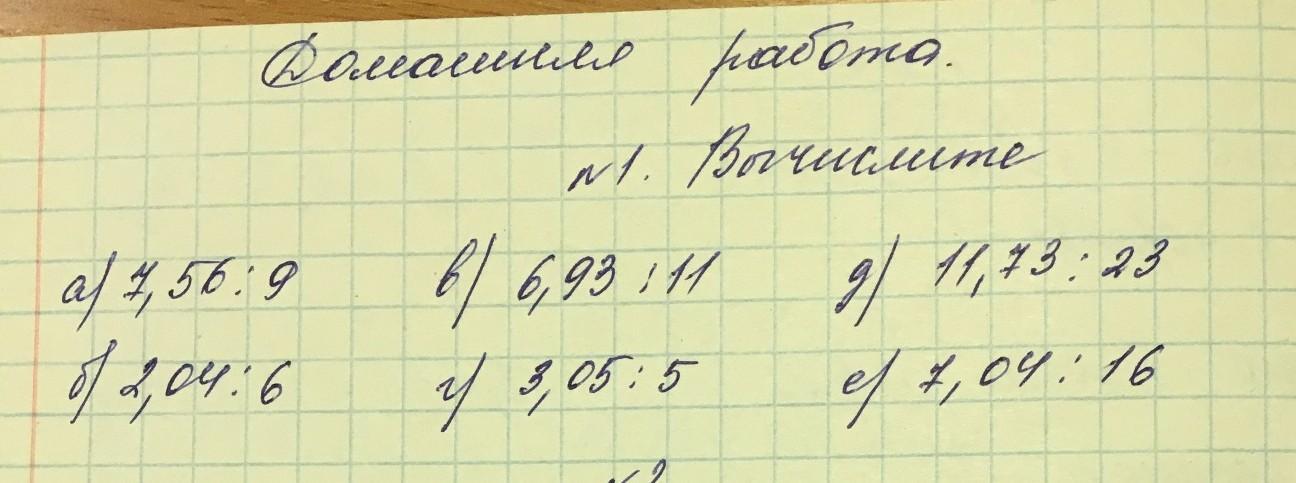 Домашняя работа.
№1. Вычислите
а) 7,56 : 9 в) 6,93 : 11 д) 11,73 : 23
б) 2,04 : 6 г) 3,05 : 5 е) 7,04 : 16